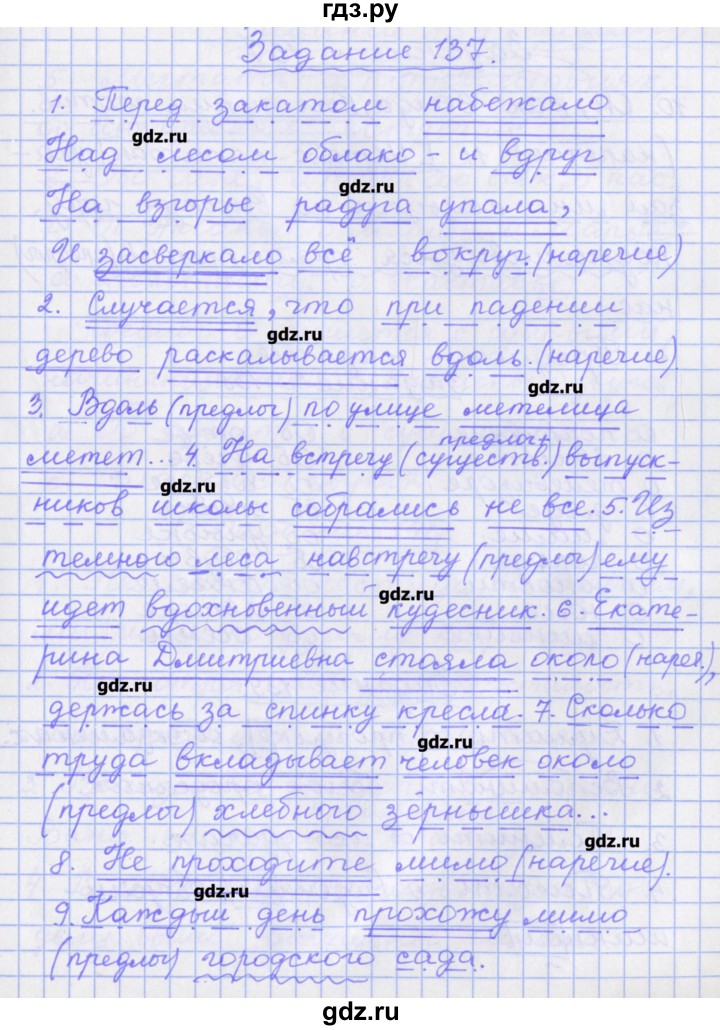 гдз.ру
Задание 137.
1. Перед закатом набежало
gdz.ru
Над лесом облако - и вдруг
gdz.ru
На взгорье радуга упала,
И засверкало всё вокруг. (наречие)
2. Случается, что при падении
gdz.ru
дерево раскалывается вдоль. (наречие).
gdz.ru
3. Вдоль (предлог) по улице метелица
предлог+
метет... 4. На встречу (существ.) выпуск-
gdz.ru
ников школы собрались не все. 5. Из
темного леса навстречу (предлог) ему
gdz.ru
идет вдохновенный кудесник. 6. Екате-
рина Дмитриевна стояла около (нареч.),
gdz.ru
держась за спинку кресла. 7. Сколько
gdz.ru
труда вкладывает человек около
(предлог) хлебного зёрнышка...
gdz.ru
8. Не проходите мимо (наречие).
gdz.ru
9. Каждый день прохожу мимо
(предлог) городского сада.
gdz.ru